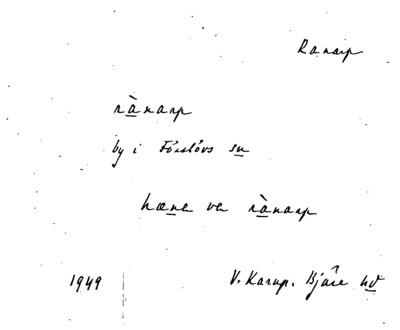 Ranarp
rànarp
by i Förslövs sn
hæna va rànarp
1949 V. Karup. Bjäre hd